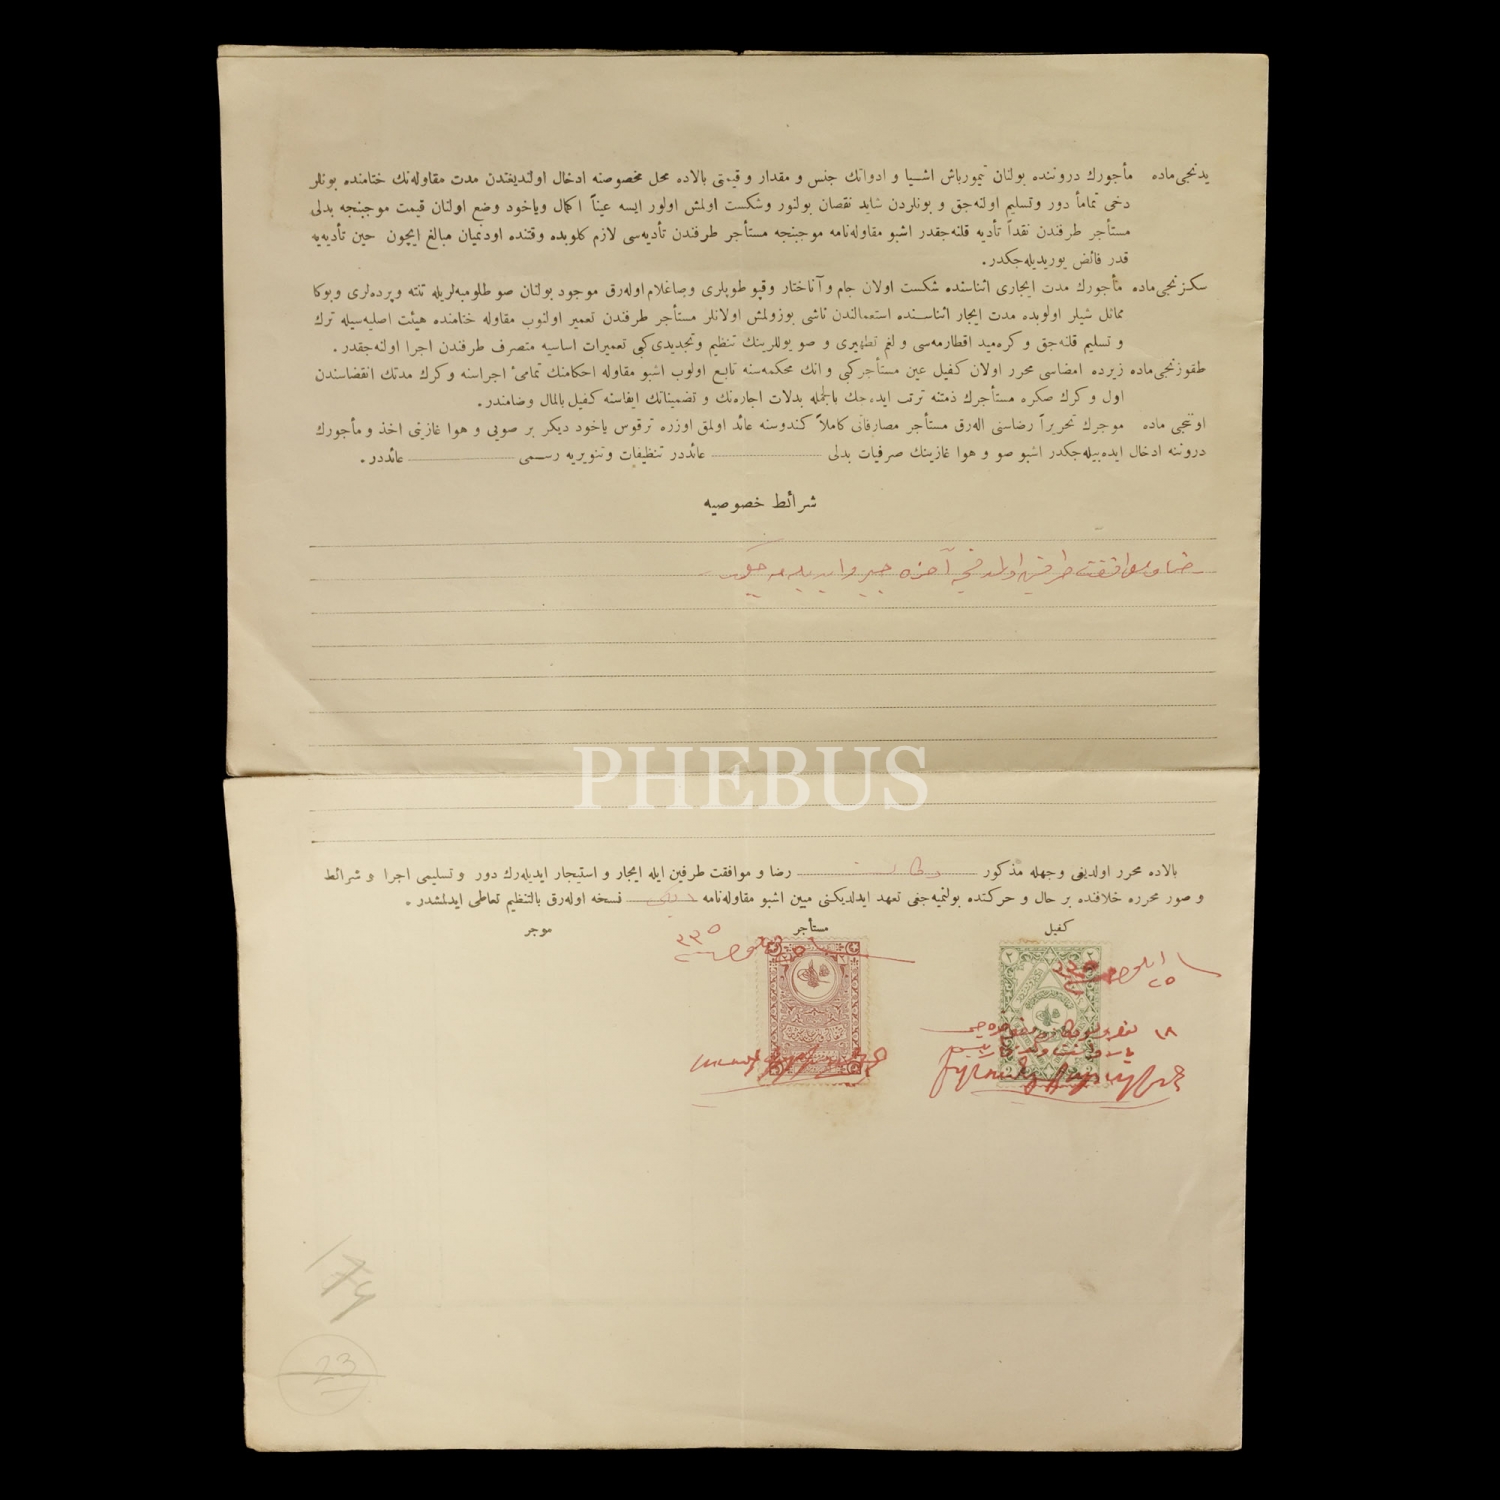 یدنجی ماده مأجورك دروننده بولنان تیمورباش اشیا و ادواتك جنس و مقدار و قیمتی بالاده محل مخصوصنه ادخال اولندیغندن مدت مقاوله‌نك ختامنده بونلر
دخی تماماً دور و تسلیم اولنه‌جق و بونلردن شاید نقصان بولنور وشکست اولمش اولور ایسه عیناً اکمال ویاخود وضع اولنان قیمت موجبنجه بدلی
مستأجر طرفندن نقداً تأدیه قلنه‌جقدر اشبو مقاوله‌نامه موجبنجه مستأجر طرفندن تأدیه‌سی لازم کلوبده وقتنده اودنمیان مبالغ ایچون حین تأدیه‌یه
قدر فائض یوریدیله‌جکدر.
سکزنجی ماده مأجورك مدت ایجاری اثناسنده شکست اولان جام و آناختار وقپو طوپلری وصاغلام اوله‌رق موجود بولنان صو طلومبه‌لریله تنته و پرده‌لری وبوکا
مماثل شیلر اولوبده مدت ایجار اثناسنده استعمالندن ناشی بوزولمش اولانلر مستأجر طرفندن تعمیر اولنوب مقاوله ختامنده هیئت اصلیه‌سیله ترك
و تسلیم قلنه‌جق و کره‌مید اقطارمه‌سی و لغم تطهیری و صو یوللرینك تنظیم وتجدیدی کبی تعمیرات اساسیه متصرف طرفندن اجرا اولنه‌جقدر.
طقوزنجی ماده زیرده امضاسی محرر اولان کفیل عین مستأجر کبی و انك محکمه‌سنه تابع اولوب اشبو مقاوله احکامنك تمامیٔ اجراسنه وکرك مدتك انقضاسندن
اول و کرك صکره مستأجرك ذمتنه ترتب ایده‌جك بالجمله بدلات اجاره‌نك و تضمیناتك ایفاسنه کفیل بالمال وضامندر.
اوننجی ماده موجرك تحریراً رضاسنی اله‌رق مستأجر مصارفاتی کاملاً کندوسنه عائد اولمق اوزره ترقوس یاخود دیکر بر صویی و هوا غازینی اخذ و مأجورك
دروننه ادخال ایده‌بیله‌جکدر اشبو صو و هوا غازینك صرفیات بدلی عائددر تنظیفات وتنویریه رسمی عائددر.
شرائط خصوصیه
بالاده محرر اولدیغی وجهله مذکور رضا و موافقت طرفین ایله ایجار و استیجار ایدیله‌رك دور و تسلیمی اجرا و شرائط
و صور محرره خلافنده بر حال و حرکتده بولنمیه‌جغی تعهد ایدلدیکنی مبین اشبو مقاوله‌نامه نسخه اوله‌رق بالتنظیم تعاطی ایدلمشدر.
کفیل مستأجر موجر
PHEBUS
23